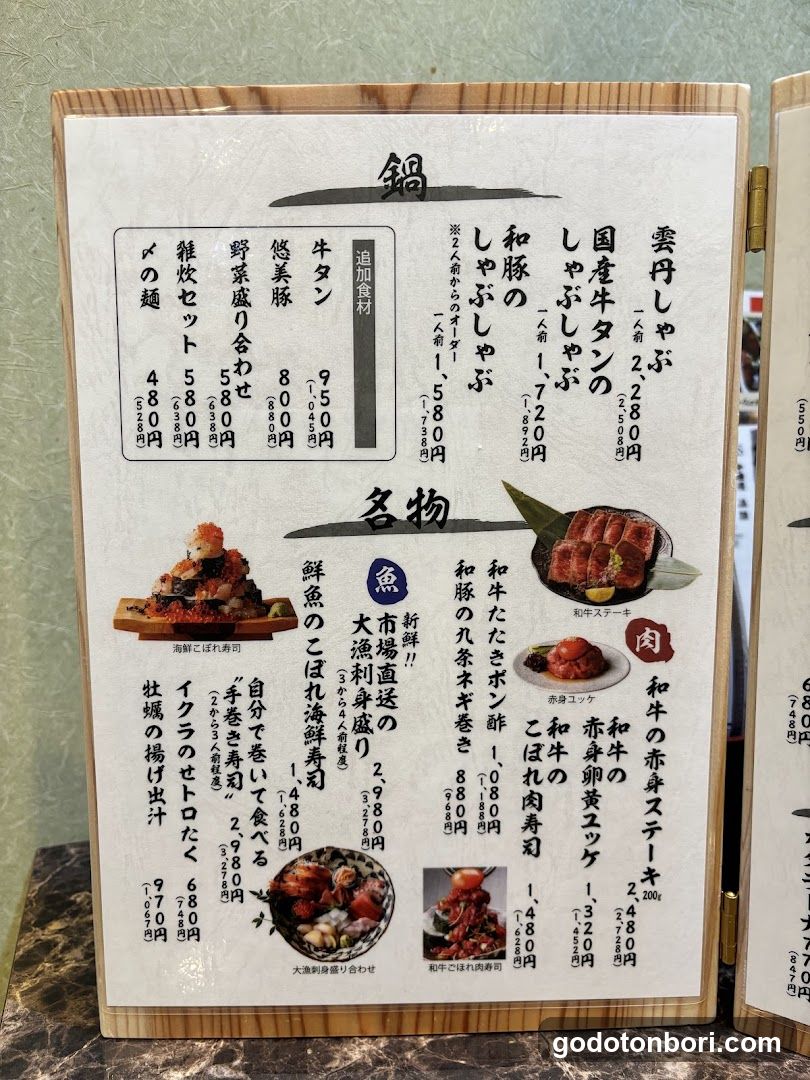 鍋
雲丹しゃぶ
一人前 2,280円
(2,508円)
国産牛タンの
しゃぶしゃぶ
一人前 1,720円
(1,892円)
和豚の
しゃぶしゃぶ
※2人前からのオーダー
一人前 1,580円
(1,738円)
追加食材
牛タン 950円
(1,045円)
悠美豚 800円
(880円)
野菜盛り合わせ 580円
(638円)
雑炊セット 580円
(638円)
〆の麺 480円
(528円)
名物
和牛ステーキ
肉
赤身ユッケ
和牛の赤身ステーキ 200g
2,480円
(2,728円)
和牛の
赤身卵黄ユッケ
1,320円
(1,452円)
和牛の
こぼれ肉寿司
1,480円
(1,628円)
和牛たたきポン酢 1,080円
(1,188円)
和豚の九条ネギ巻き 880円
(968円)
和牛こぼれ肉寿司
魚
新鮮!!
市場直送の
大漁刺身盛り
(3から4人前程度)
2,980円
(3,278円)
鮮魚のこぼれ海鮮寿司
1,480円
(1,628円)
海鮮こぼれ寿司
自分で巻いて食べる
“手巻き寿司”
(2から3人前程度)
2,980円
(3,278円)
イクラのせトロたく 680円
(748円)
牡蠣の揚げ出汁 970円
(1,067円)
大漁刺身盛り合わせ
(550円)
680円
(748円)
770円
(847円)
godotonbori.com